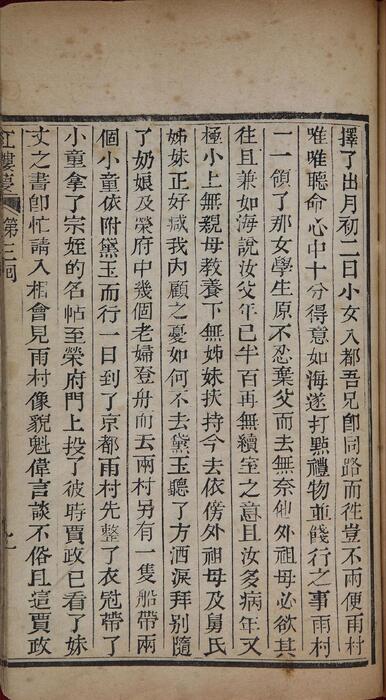 擇了出月初二日小女入都吾兄卽同路而徃豈不兩便雨村
唯唯聽命心中十分得意如海遂打點禮物並餞行之事雨村
一一領了那女學生原不忍棄父而去無奈他外祖母必欲其
徃且兼如海說汝父年已半百再無續室之意且汝多病年又
極小上無親母教養下無姊妹扶持今去依傍外祖母及舅氏
姊妹正好減我內顧之憂如何不去黛玉聽了方洒淚拜別隨
了奶娘及榮府中幾個老婦登舟而去雨村另有一隻船帶兩
個小童依附黛玉而行一日到了京都雨村先整了衣冠帶了
小童拿了宗姪的名帖至榮府門上投了彼時賈政已看了妹
丈之書卽忙請入相會見雨村像貌魁偉言談不俗且這賈政
紅樓夢 第三回